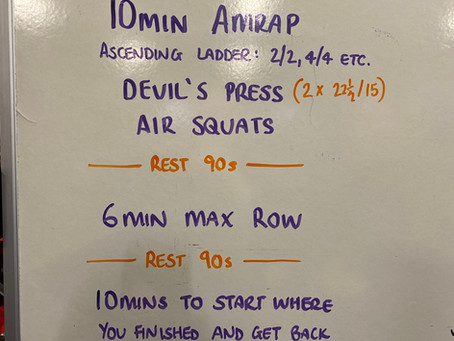 10MIN AMRAP
ASCENDING LADDER: 2/2, 4/4 ETC.
DEVIL'S PRESS (2 x 22½/15)
AIR SQUATS
REST 90s
6MIN MAX ROW
REST 90s
10MINS TO START WHERE
YOU FINISHED AND GET BACK